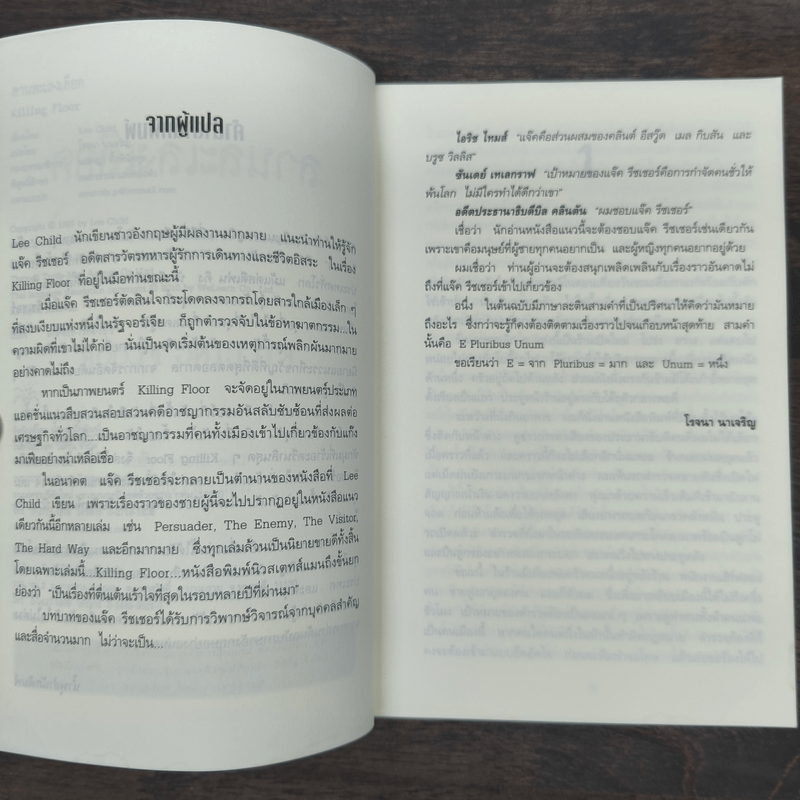 จากผู้แปล
Lee Child นักเขียนชาวอังกฤษผู้มีผลงานมากมาย แนะนำท่านให้รู้จัก
แจ๊ค รีชเชอร์ อดีตสารวัตรทหารผู้รักการเดินทางและชีวิตอิสระ ในเรื่อง
Killing Floor ที่อยู่ในมือท่านขณะนี้
เมื่อแจ๊ค รีชเชอร์ตัดสินใจกระโดดลงจากรถโดยสารใกล้เมืองเล็ก ๆ
ที่สงบเงียบแห่งหนึ่งในรัฐจอร์เจีย ก็ถูกตำรวจจับในข้อหาฆาตกรรม...ใน
ความผิดที่เขาไม่ได้ก่อ นั่นเป็นจุดเริ่มต้นของเหตุการณ์พลิกผันมากมาย
อย่างคาดไม่ถึง
หากเป็นภาพยนตร์ Killing Floor จะจัดอยู่ในภาพยนตร์ประเภท
แอคชั่นแนวสืบสวนสอบสวนคดีอาชญากรรมอันสลับซับซ้อนที่ส่งผลต่อ
เศรษฐกิจทั่วโลก...เป็นอาชญากรรมที่คนทั้งเมืองเข้าไปเกี่ยวข้องกับแก๊ง
มาเฟียอย่างน่าเหลือเชื่อ
ในอนาคต แจ๊ค รีชเชอร์จะกลายเป็นตำนานของหนังสือที่ Lee
Child เขียน เพราะเรื่องราวของชายผู้นี้จะไปปรากฏอยู่ในหนังสือแนว
เดียวกันนี้อีกหลายเล่ม เช่น Persuader, The Enemy, The Visitor,
The Hard Way และอีกมากมาย ซึ่งทุกเล่มล้วนเป็นนิยายขายดีทั้งสิ้น
โดยเฉพาะเล่มนี้...Killing Floor...หนังสือพิมพ์นิวสเตทส์แมนถึงขั้นยก
ย่องว่า "เป็นเรื่องที่ตื่นเต้นเร้าใจที่สุดในรอบหลายปีที่ผ่านมา"
บทบาทของแจ๊ค รีชเชอร์ได้รับการวิพากษ์วิจารณ์จากบุคคลสำคัญ
และสื่อจำนวนมาก ไม่ว่าจะเป็น...
ไอริช ไทมส์ "แจ๊คคือส่วนผสมของคลินต์ อีสวู๊ด เมล กิบสัน และ
บรูซ วิลลิส"
ซันเดย์ เทเลกราฟ "เป้าหมายของแจ๊ค รีชเชอร์คือการกำจัดคนชั่วให้
พ้นโลก ไม่มีใครทำได้ดีกว่าเขา"
อดีตประธานาธิบดีบิล คลินตัน "ผมชอบแจ๊ค รีชเชอร์"
เชื่อว่า นักอ่านหนังสือแนวนี้จะต้องชอบแจ๊ค รีชเชอร์เช่นเดียวกัน
เพราะเขาคือมนุษย์ที่ผู้ชายทุกคนอยากเป็น และผู้หญิงทุกคนอยากอยู่ด้วย
ผมเชื่อว่า ท่านผู้อ่านจะต้องสนุกเพลิดเพลินกับเรื่องราวอันคาดไม่
ถึงที่แจ๊ค รีชเชอร์เข้าไปเกี่ยวข้อง
อนึ่ง ในต้นฉบับมีภาษาละตินสามคำที่เป็นปริศนาให้คิดว่ามันหมาย
ถึงอะไร ซึ่งกว่าจะรู้ก็คงต้องติดตามเรื่องราวไปจนเกือบหน้าสุดท้าย สามคำ
นั้นคือ E Pluribus Unum
ขอเรียนว่า E = จาก Pluribus = มาก และ Unum = หนึ่ง
โรจนา นาเจริญ